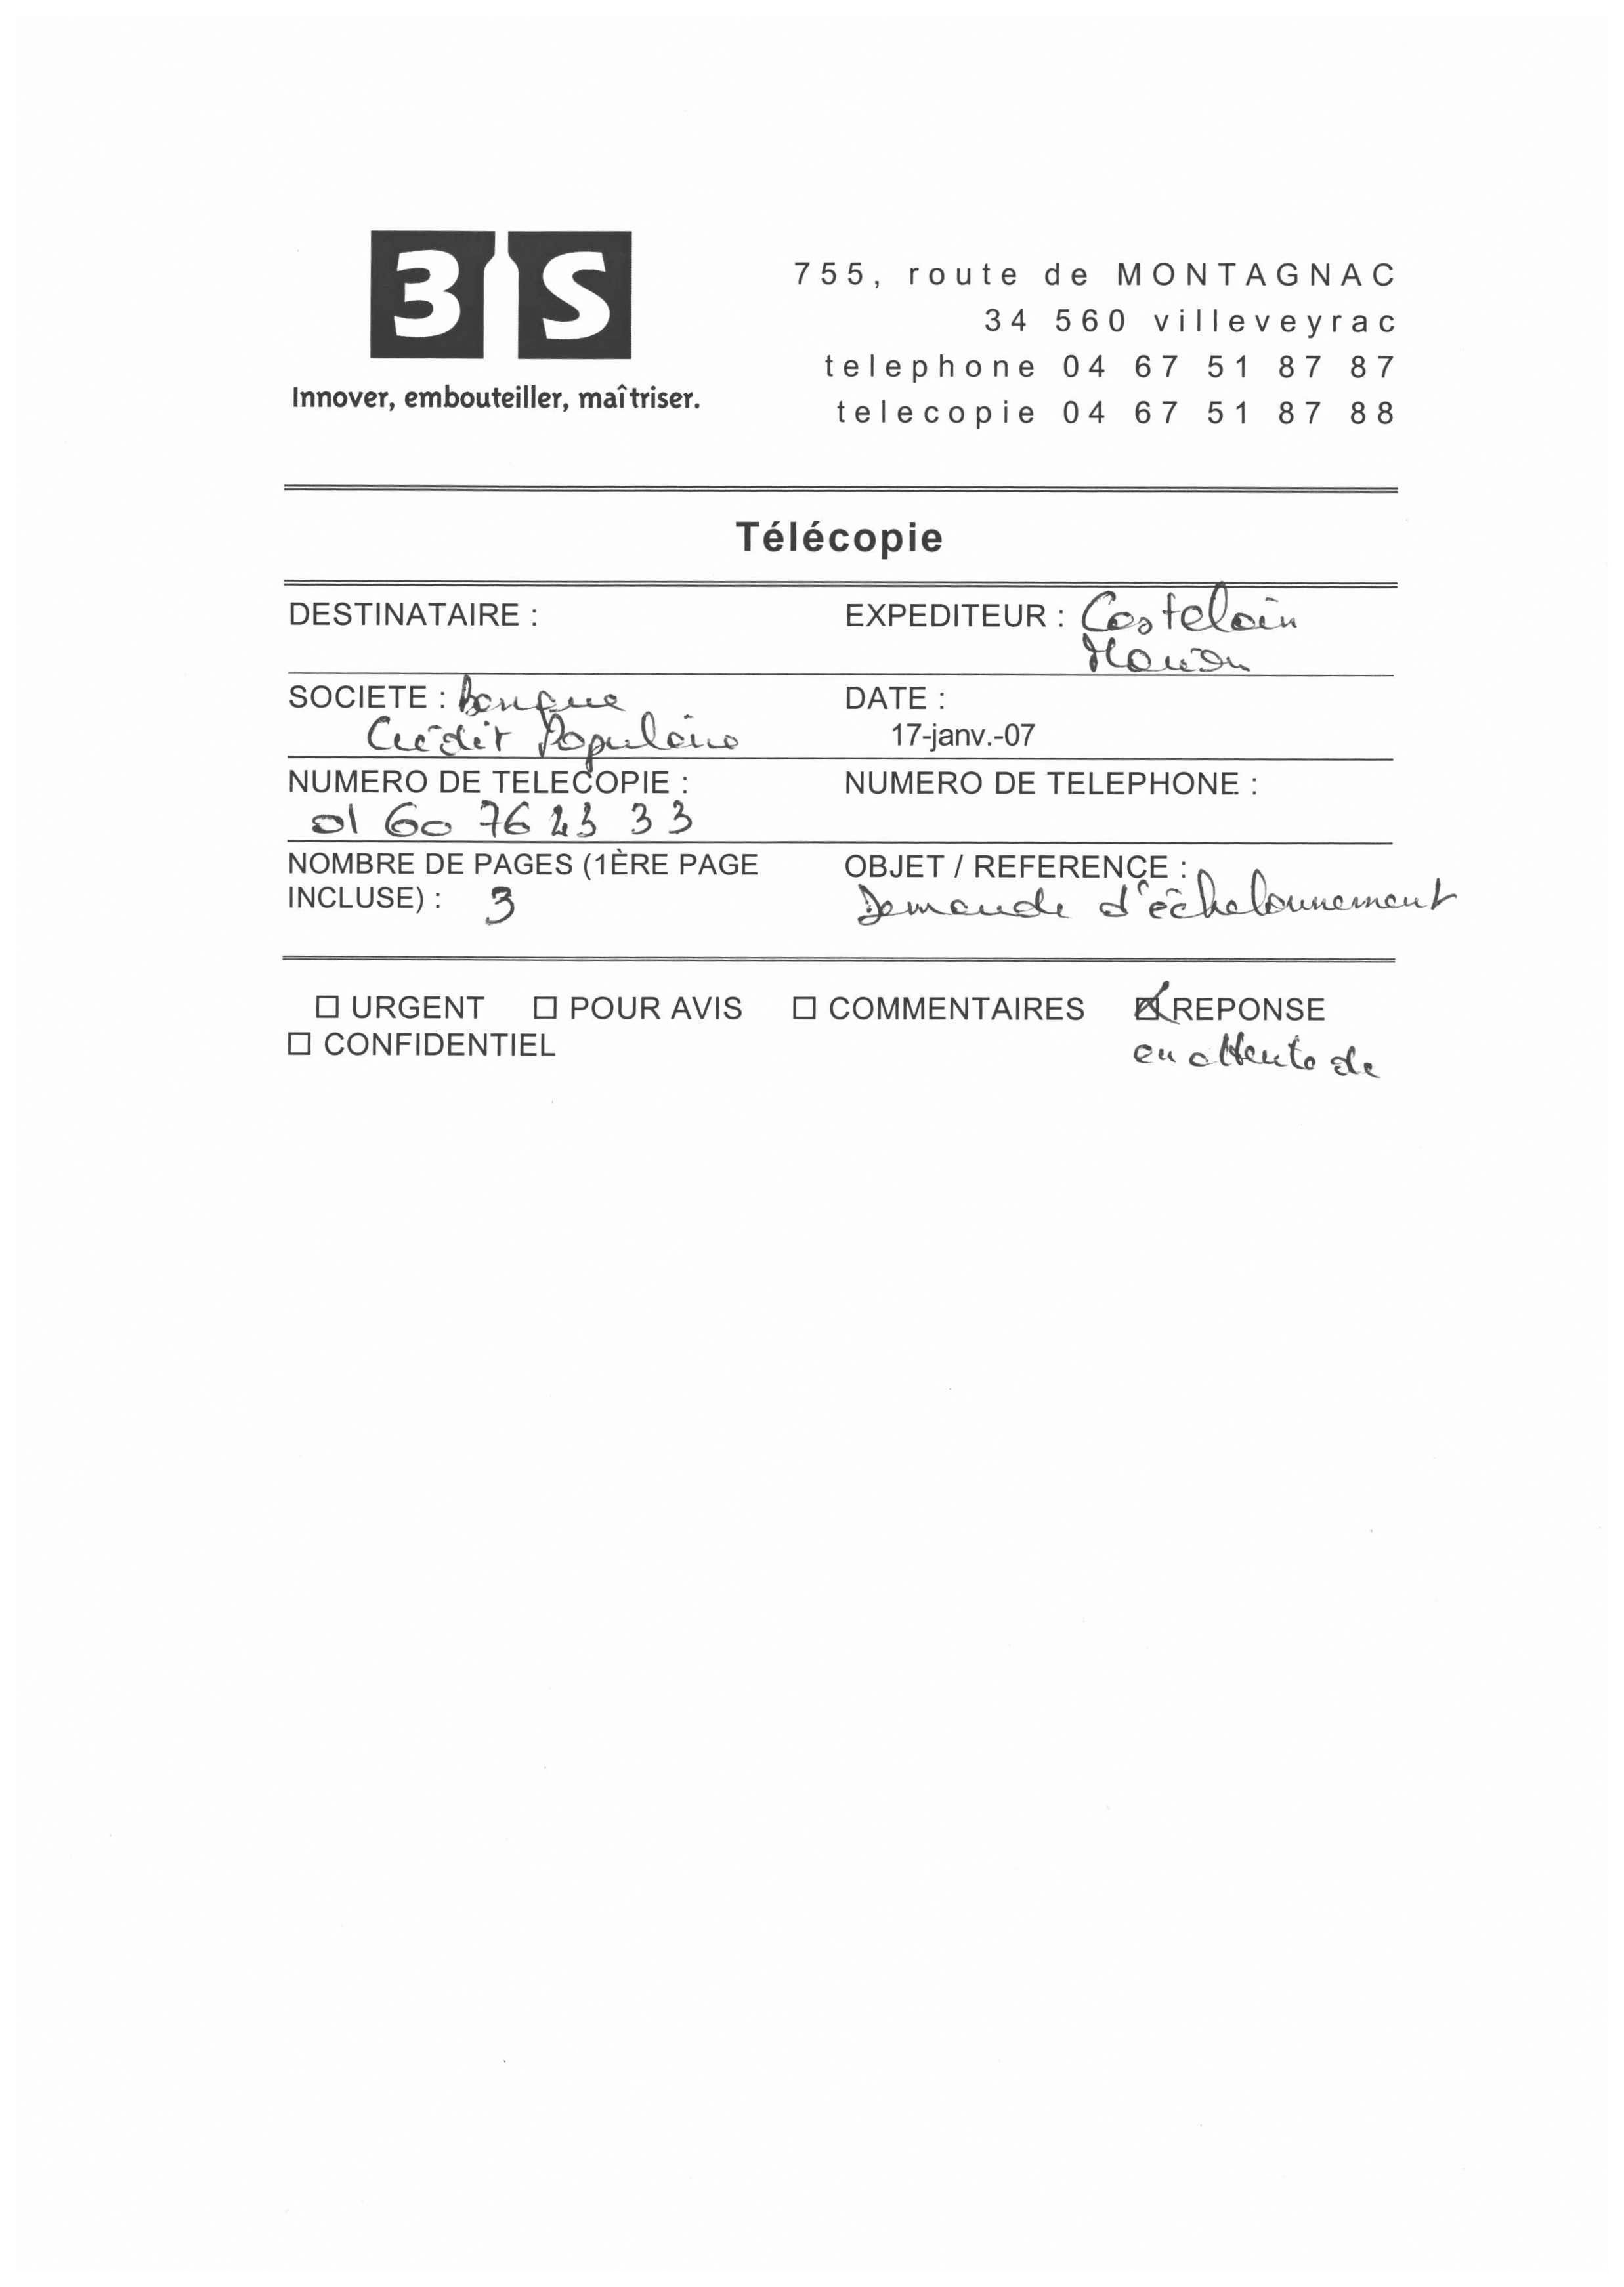 3 S
Innover, embouteiller, maîtriser.
755, route de MONTAGNAC
34 560 villeveyrac
telephone 04 67 51 87 87
telecopie 04 67 51 87 88
Télécopie
DESTINATAIRE :
EXPEDITEUR : Costelain
Manon
SOCIETE : Banque
Crédit Populaire
DATE :
17-janv.-07
NUMERO DE TELECOPIE :
01 60 76 23 33
NUMERO DE TELEPHONE :
NOMBRE DE PAGES (1ÈRE PAGE
INCLUSE) : 3
OBJET / REFERENCE :
Demande d'échelonnement
☐ URGENT ☐ POUR AVIS ☐ COMMENTAIRES ☒ REPONSE
☐ CONFIDENTIEL
en attente de